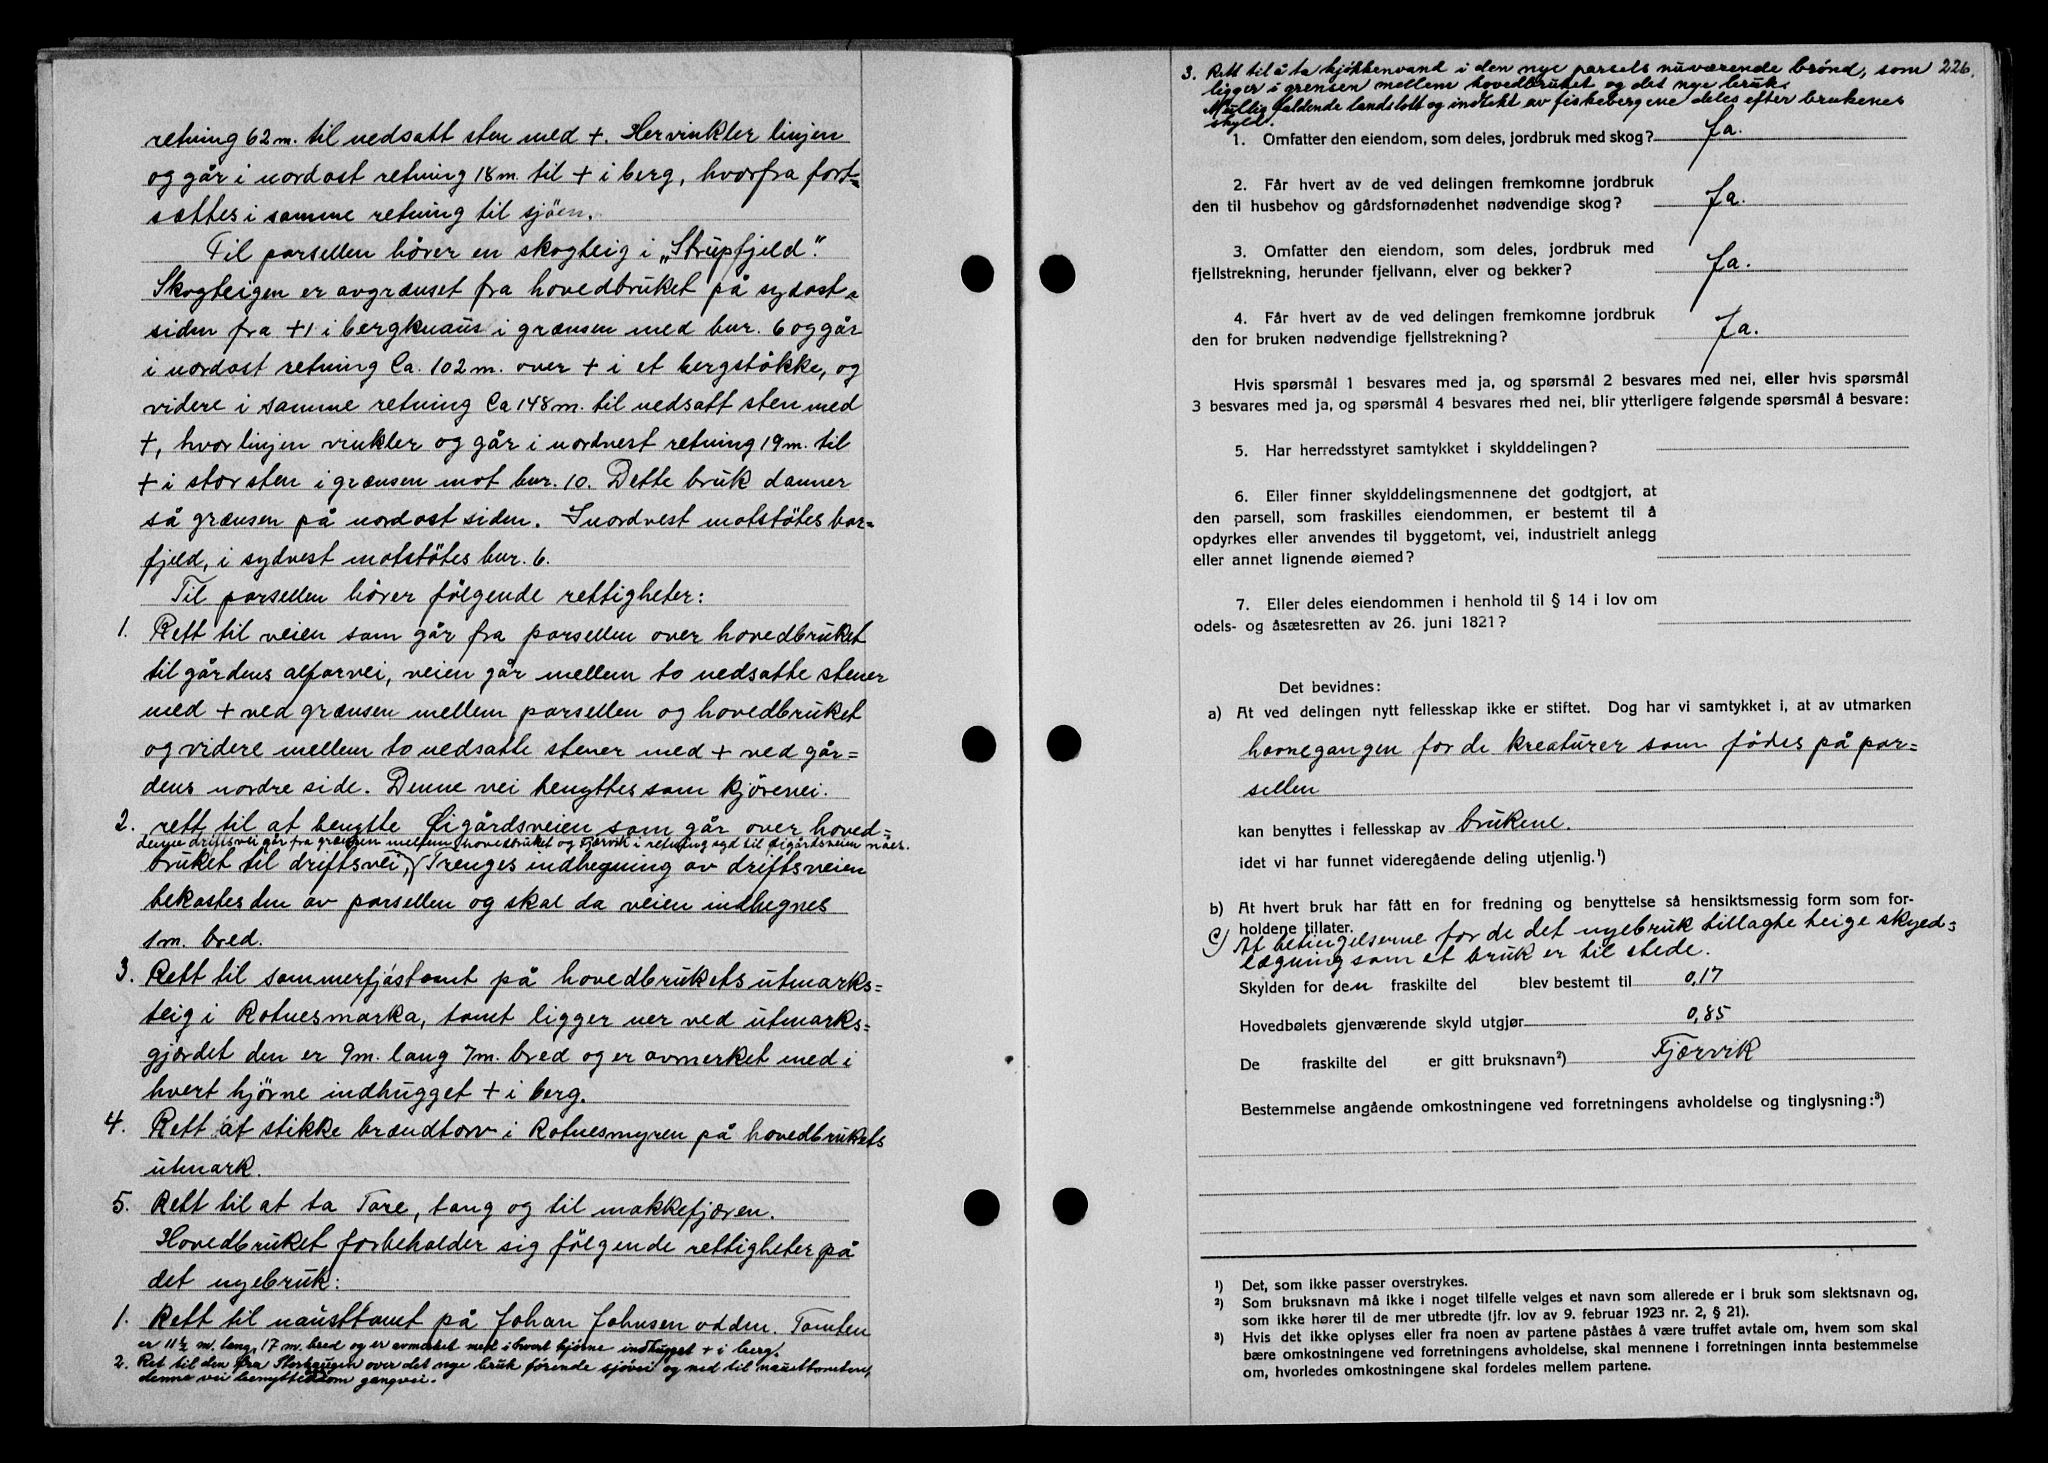 retning 62 m. til nedsatt sten med +. Her vinkler linjen
og går i nordost retning 18 m. til + i berg, hvorfra fort-
sættes i samme retning til sjöen.
Til parsellen hörer en skogteig i „Strupfjeld".
Skogteigen er avgrænset fra hovedbruket på sydost-
siden fra +1 i bergknaus i grænsen med bnr. 6 og går
i nordost retning Ca. 102 m. over + i et bergstökke, og
videre i samme retning Ca 148 m. til nedsatt sten med
+, hvor linjen vinkler og går i nordvest retning 19 m. til
+ i stor sten i grænsen mot bnr. 10. Dette bruk danner
så grænsen på nordost siden. I nordvest motstötes bar=
fjeld, i sydvest motstötes bnr. 6.
Til parsellen hörer fölgende rettigheter:
1. Rett til veien som går fra parsellen over hovedbruket
til gårdens alfarvei, veien går mellem to nedsatte stener
med + ved grænsen mellem parsellen og hovedbruket
og videre mellem to nedsatte stener med + ved går=
dens nordre side. Denne vei benyttes som kjörevei.
2. rett til at benytte Øigårdsveien som går over hoved=
denne driftsvei går fra grænsen mellem hovedbruket og Fjærvik i retning syd til øigårdsveien nåes.
bruket til driftsvei, Trenges indhegning av driftsveien
bekostes den av parsellen og skal da veien indhegnes
1 m. bred.
3. Rett til sommerfjöstomt på hovedbrukets utmarks=
teig i Rotnesmarka, tomt ligger ner ved utmarks=
gjærdet den er 9 m. lang 7 m. bred og er avmerket med i
hvert hjørne indhugget + i berg.
4. Rett at stikke brændtorv i Rotnesmyren på hovedbrukets
utmark.
5. Rett til at ta Tare, tang og til makkefjæren.
Hovedbruket forbeholder sig fölgende rettigheter på
det nyebruk:
1. Rett til nausttomt på Johan Johnsen odden. Tomten
er 11½ m. lang, 17 m. bred og er avmerket med i hvert hjörne indhugget + i berg.
2. Ret til den fra Storhaugen over det nye bruk förende sjövei og ned til nausttomten,
denne vei benyttes som gangvei.
3. Rett til å ta kjökkenvand i den nye parsels nuværende brönd, som 226.
ligger i grensen mellem hovedbruket og det nye bruk.
Mullig faldende landslott og indtekt av fiskebergene deles efter brukenes
skyld.
1. Omfatter den eiendom, som deles, jordbruk med skog? Ja.
2. Får hvert av de ved delingen fremkomne jordbruk
den til husbehov og gårdsfornødenhet nødvendige skog? Ja.
3. Omfatter den eiendom, som deles, jordbruk med
fjellstrekning, herunder fjellvann, elver og bekker? Ja.
4. Får hvert av de ved delingen fremkomne jordbruk
den for bruken nødvendige fjellstrekning? Ja.
Hvis spørsmål 1 besvares med ja, og spørsmål 2 besvares med nei, eller hvis spørsmål
3 besvares med ja, og spørsmål 4 besvares med nei, blir ytterligere følgende spørsmål å besvare:
5. Har herredsstyret samtykket i skylddelingen?
6. Eller finner skylddelingsmennene det godtgjort, at
den parsell, som fraskilles eiendommen, er bestemt til å
opdyrkes eller anvendes til byggetomt, vei, industrielt anlegg
eller annet lignende øiemed?
7. Eller deles eiendommen i henhold til § 14 i lov om
odels- og åsætesretten av 26. juni 1821?
Det bevidnes:
a) At ved delingen nytt fellesskap ikke er stiftet. Dog har vi samtykket i, at av utmarken
havnegangen for de kreaturer som födes på par=
sellen
kan benyttes i fellesskap av brukene.
idet vi har funnet videregående deling utjenlig.¹)
b) At hvert bruk har fått en for fredning og benyttelse så hensiktsmessig form som for-
holdene tillater.
c) At betingelserne for de det nyebruk tillagte teige skyed=
lægning som et bruk er til stede.
Skylden for den fraskilte del blev bestemt til 0,17
Hovedbølets gjenværende skyld utgjør 0,85
De fraskilte del er gitt bruksnavn²) Fjærvik
Bestemmelse angående omkostningene ved forretningens avholdelse og tinglysning:³)
¹) Det, som ikke passer overstrykes.
²) Som bruksnavn må ikke i noget tilfelle velges et navn som allerede er i bruk som slektsnavn og,
som ikke hører til de mer utbredte (jfr. lov av 9. februar 1923 nr. 2, § 21).
³) Hvis det ikke oplyses eller fra noen av partene påståes å være truffet avtale om, hvem som skal
bære omkostningene ved forretningens avholdelse, skal mennene i forretningen innta bestemmelse
om, hvorledes omkostningene skal fordeles mellem partene.